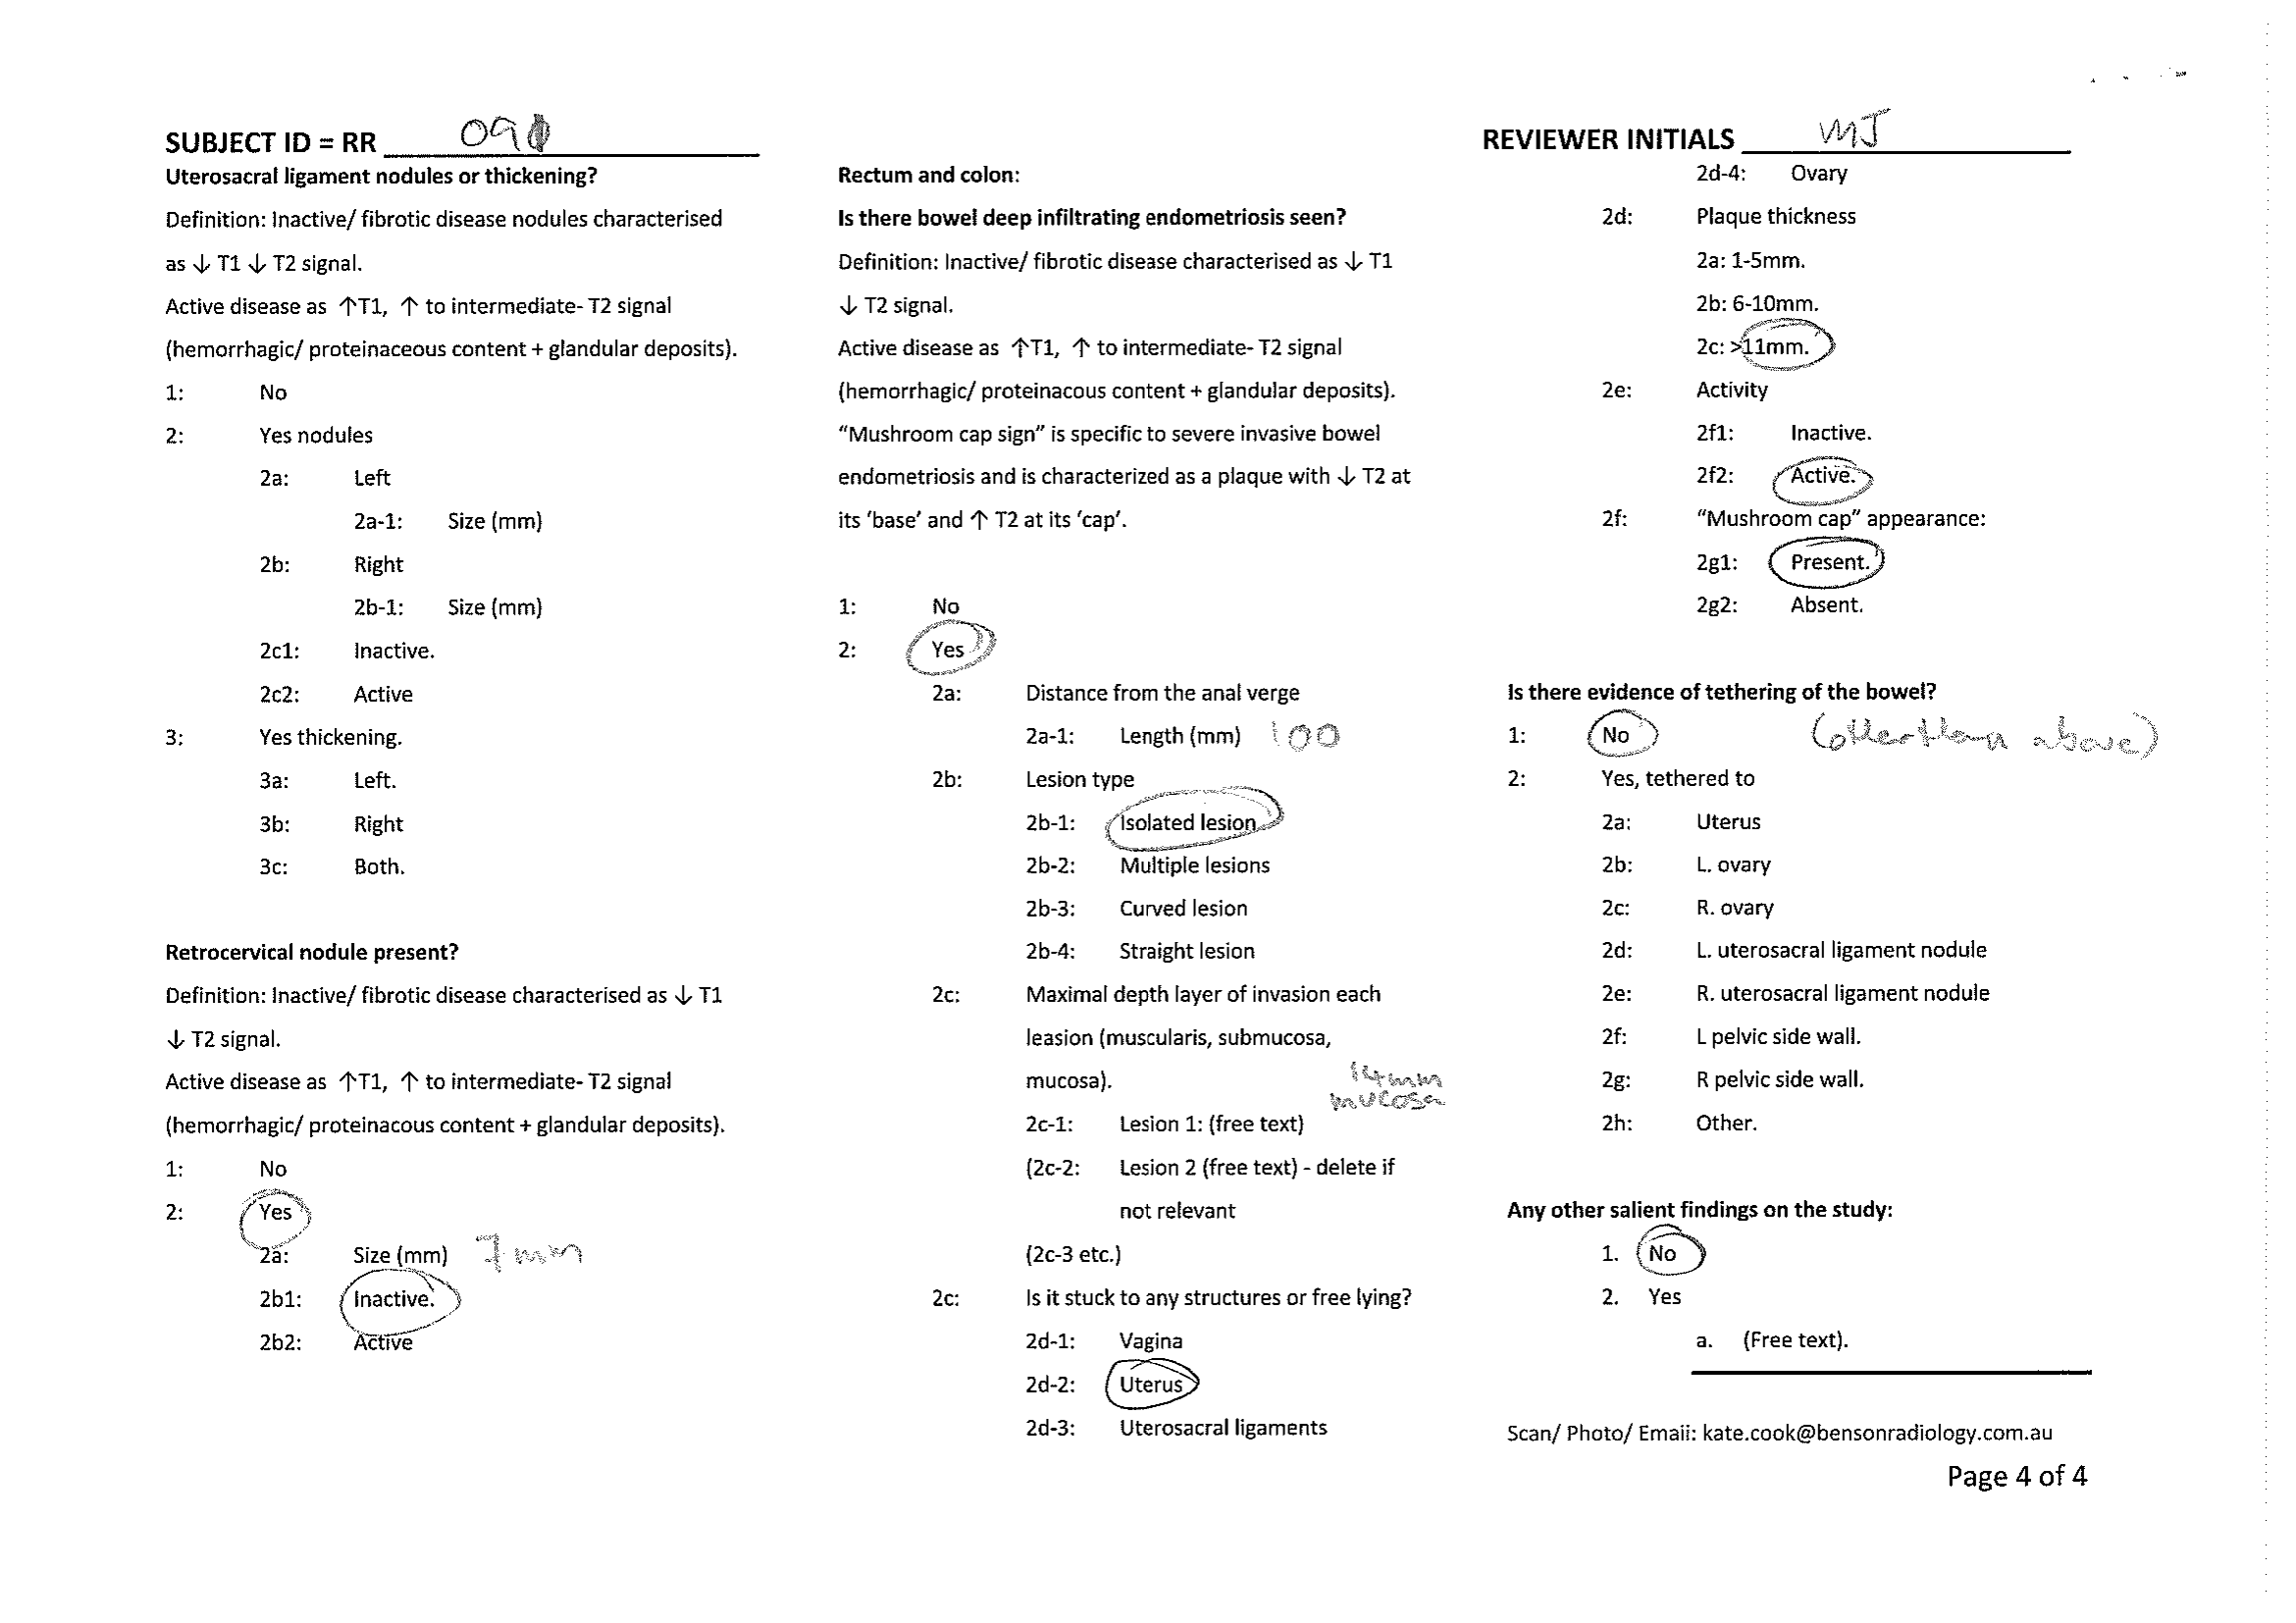 SUBJECT ID = RR 091
Uterosacral ligament nodules or thickening?
Definition: Inactive/ fibrotic disease nodules characterised
as ↓ T1 ↓ T2 signal.
Active disease as ↑T1, ↑ to intermediate- T2 signal
(hemorrhagic/ proteinaceous content + glandular deposits).
1: No
2: Yes nodules
2a: Left
2a-1: Size (mm)
2b: Right
2b-1: Size (mm)
2c1: Inactive.
2c2: Active
3: Yes thickening.
3a: Left.
3b: Right
3c: Both.
Retrocervical nodule present?
Definition: Inactive/ fibrotic disease characterised as ↓ T1
↓ T2 signal.
Active disease as ↑T1, ↑ to intermediate- T2 signal
(hemorrhagic/ proteinacous content + glandular deposits).
1: No
2: Yes
2a: Size (mm) 7mm
2b1: Inactive.
2b2: Active
Rectum and colon:
Is there bowel deep infiltrating endometriosis seen?
Definition: Inactive/ fibrotic disease characterised as ↓ T1
↓ T2 signal.
Active disease as ↑T1, ↑ to intermediate- T2 signal
(hemorrhagic/ proteinacous content + glandular deposits).
“Mushroom cap sign” is specific to severe invasive bowel
endometriosis and is characterized as a plaque with ↓ T2 at
its ‘base’ and ↑ T2 at its ‘cap’.
1: No
2: Yes
2a: Distance from the anal verge
2a-1: Length (mm) 100
2b: Lesion type
2b-1: Isolated lesion
2b-2: Multiple lesions
2b-3: Curved lesion
2b-4: Straight lesion
2c: Maximal depth layer of invasion each
leasion (muscularis, submucosa,
mucosa).
14mm
mucosa
2c-1: Lesion 1: (free text)
(2c-2: Lesion 2 (free text) - delete if
not relevant
(2c-3 etc.)
2c: Is it stuck to any structures or free lying?
2d-1: Vagina
2d-2: Uterus
2d-3: Uterosacral ligaments
REVIEWER INITIALS MJ
2d-4: Ovary
2d: Plaque thickness
2a: 1-5mm.
2b: 6-10mm.
2c: >11mm.
2e: Activity
2f1: Inactive.
2f2: Active.
2f: “Mushroom cap” appearance:
2g1: Present.
2g2: Absent.
Is there evidence of tethering of the bowel?
1: No (other than above)
2: Yes, tethered to
2a: Uterus
2b: L. ovary
2c: R. ovary
2d: L. uterosacral ligament nodule
2e: R. uterosacral ligament nodule
2f: L pelvic side wall.
2g: R pelvic side wall.
2h: Other.
Any other salient findings on the study:
1. No
2. Yes
a. (Free text).
Scan/ Photo/ Email: kate.cook@bensonradiology.com.au
Page 4 of 4